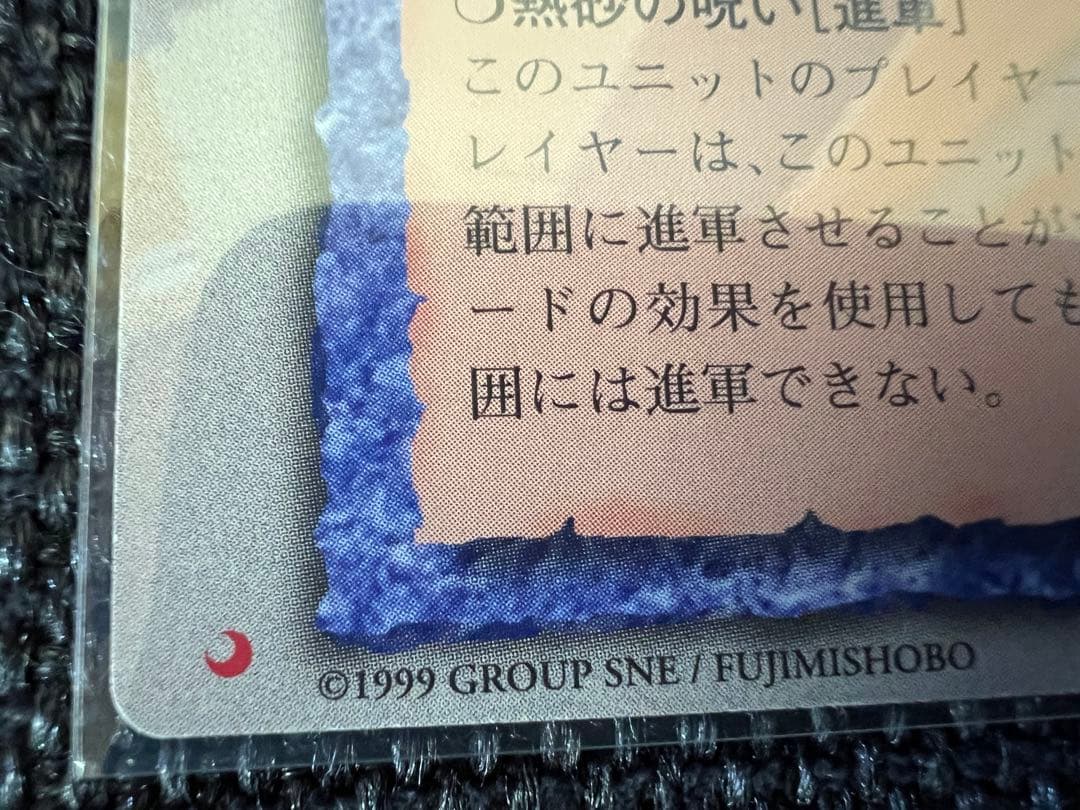 ○熱砂の呪い[進軍]
このユニットのプレイヤー
レイヤーは、このユニット
範囲に進軍させることが
ードの効果を使用しても
囲には進軍できない。
©1999 GROUP SNE / FUJIMISHOBO